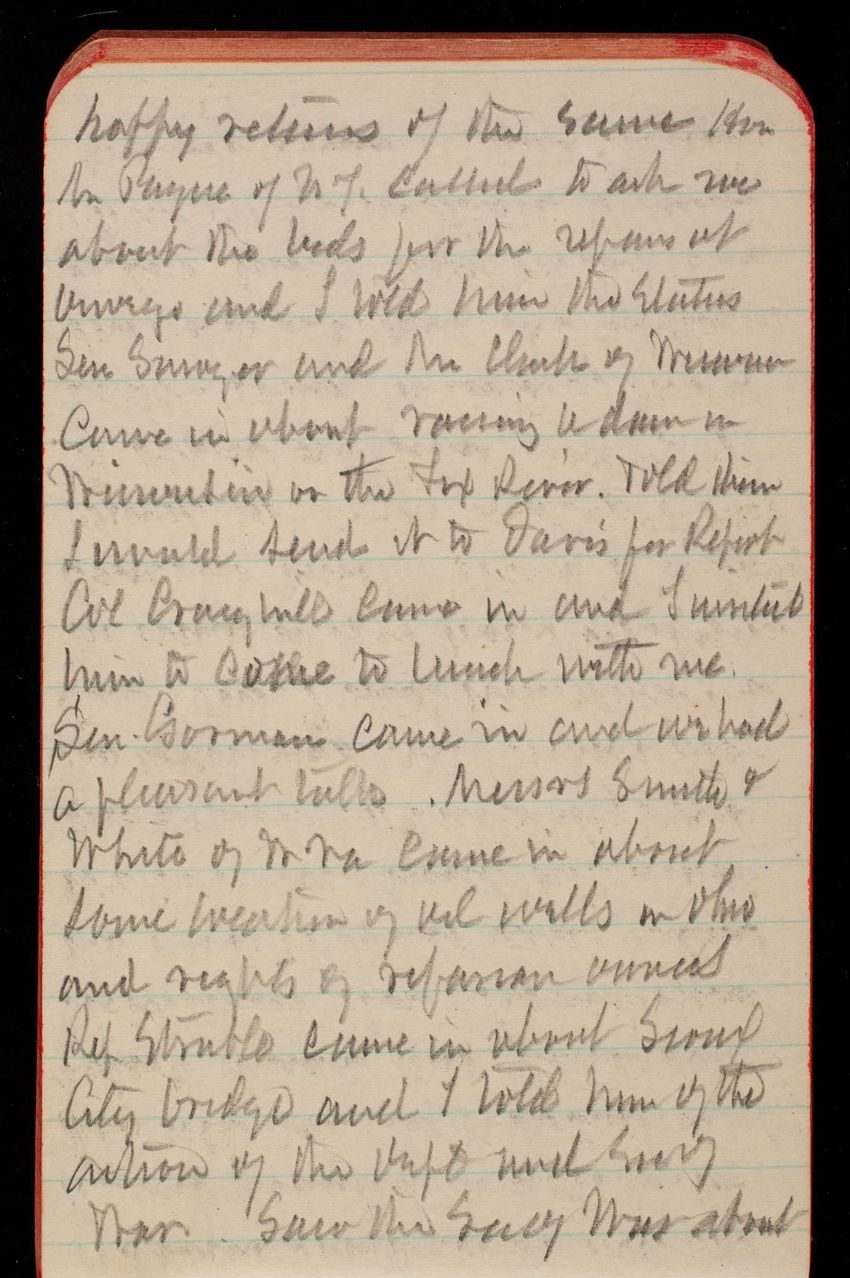 happy returns of the same Hon
Mr Payne of N.Y. called to ask me
about the beds for the repairs at
Oswego and I told him the Status
Sen Sawyer and the Clerk of
Came in about raising a dam in
Wisconsin on the Fox River. Told them
I would send it to Davis for Report
Col Craighill came in and I invited
him to come to lunch with me.
Sen. Gorman came in and we had
a pleasant talk. Messrs Smith &
White of W Va came in about
some location of oil wells in Ohio
and rights of riparian owners
Rep Struble came in about Sioux
City bridge and I told him of the
action of the Dept and Secy
War. Saw the Secy War about